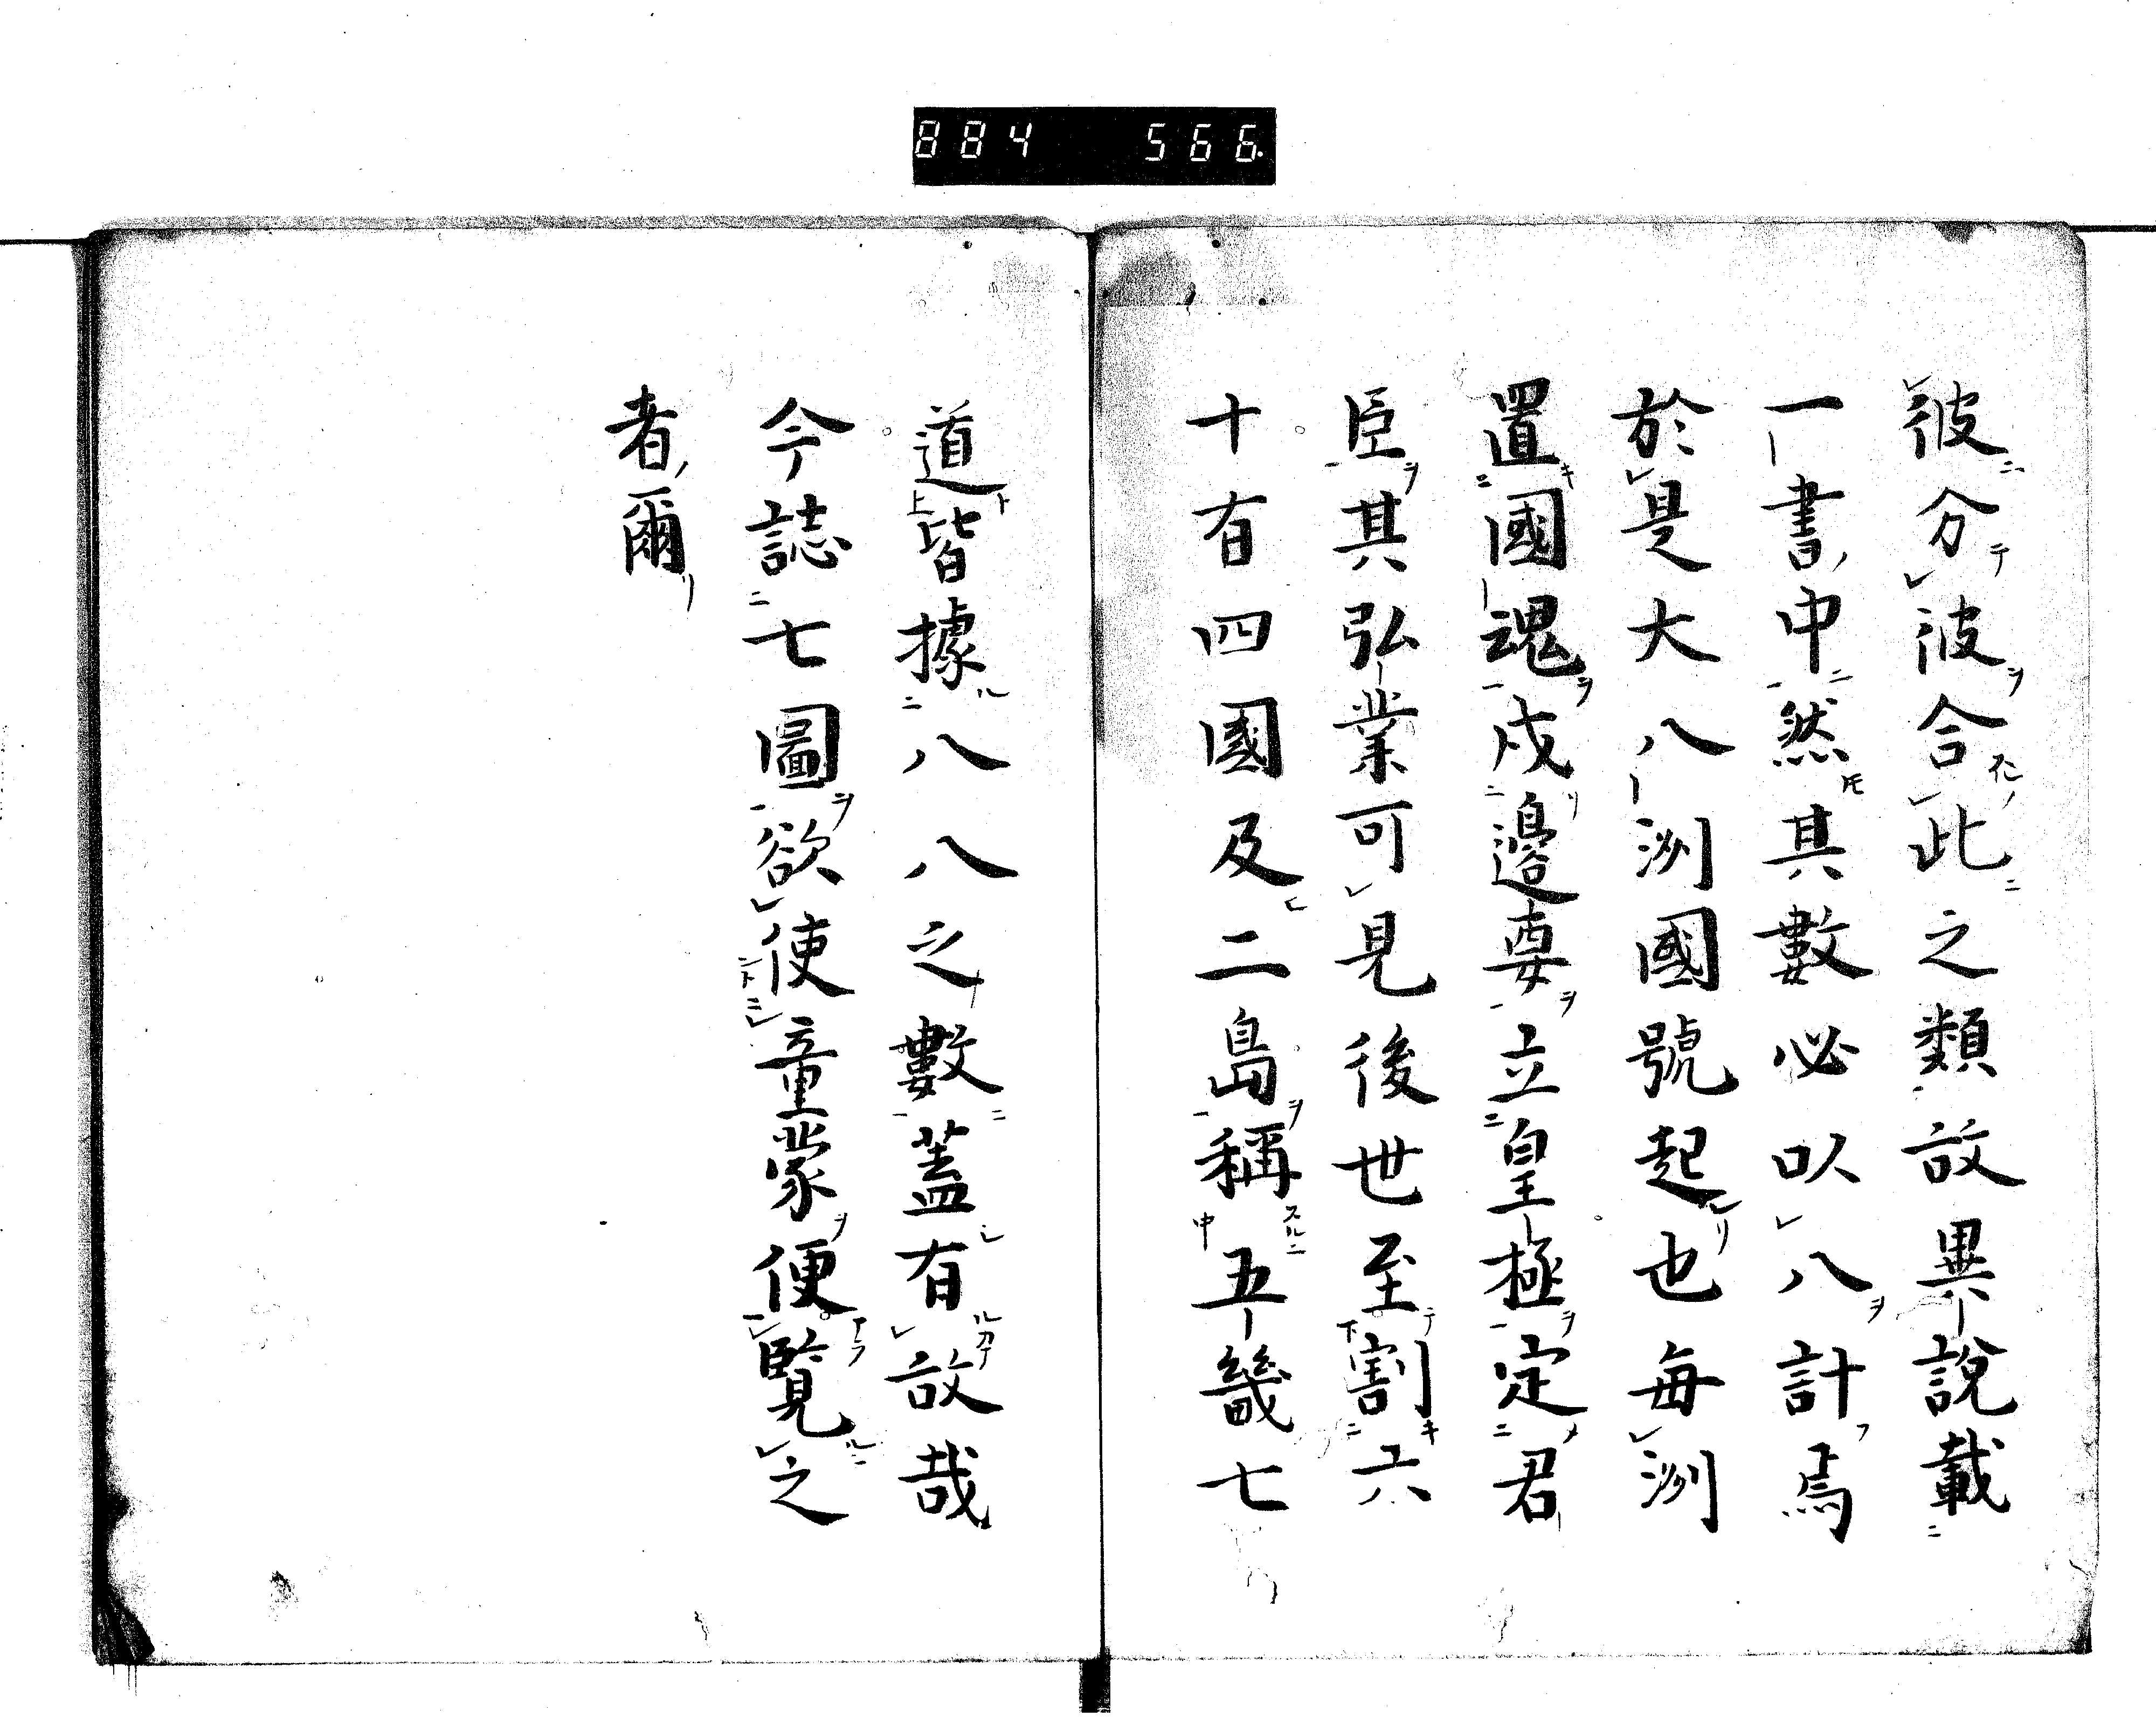 884 566
彼分彼合此之類故異說載
一書中然其數必以八計焉
於是大八洲國號起也每洲
置國魂戍邊要立皇極定君
臣其弘業可見後世至割六
十有四國及二島稱五畿七
道皆據八八之數蓋有故哉
今誌七圖欲使童蒙便覽之
者爾